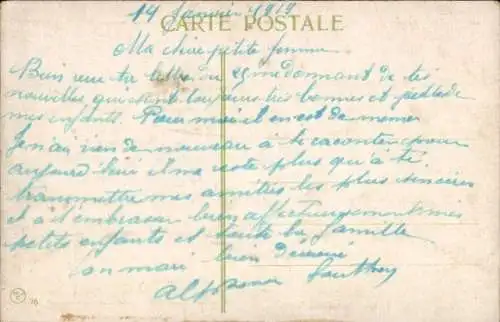 14 Janvier 1919
CARTE POSTALE
Ma chère petite femme
Bien reçu ta lettre du 25 me donnant de tes
nouvelles qui sont toujours très bonnes et de
mes enfants. Pour moi il en est de même
Je n'ai rien de nouveau à te raconter pour
aujourd'hui il me reste plus qu'à te
transmettre mes amitiés les plus sincères
et à t'embrasser bien affectueusement mes
petits enfants et toute la famille
ton mari bien dévoué
Alphonse